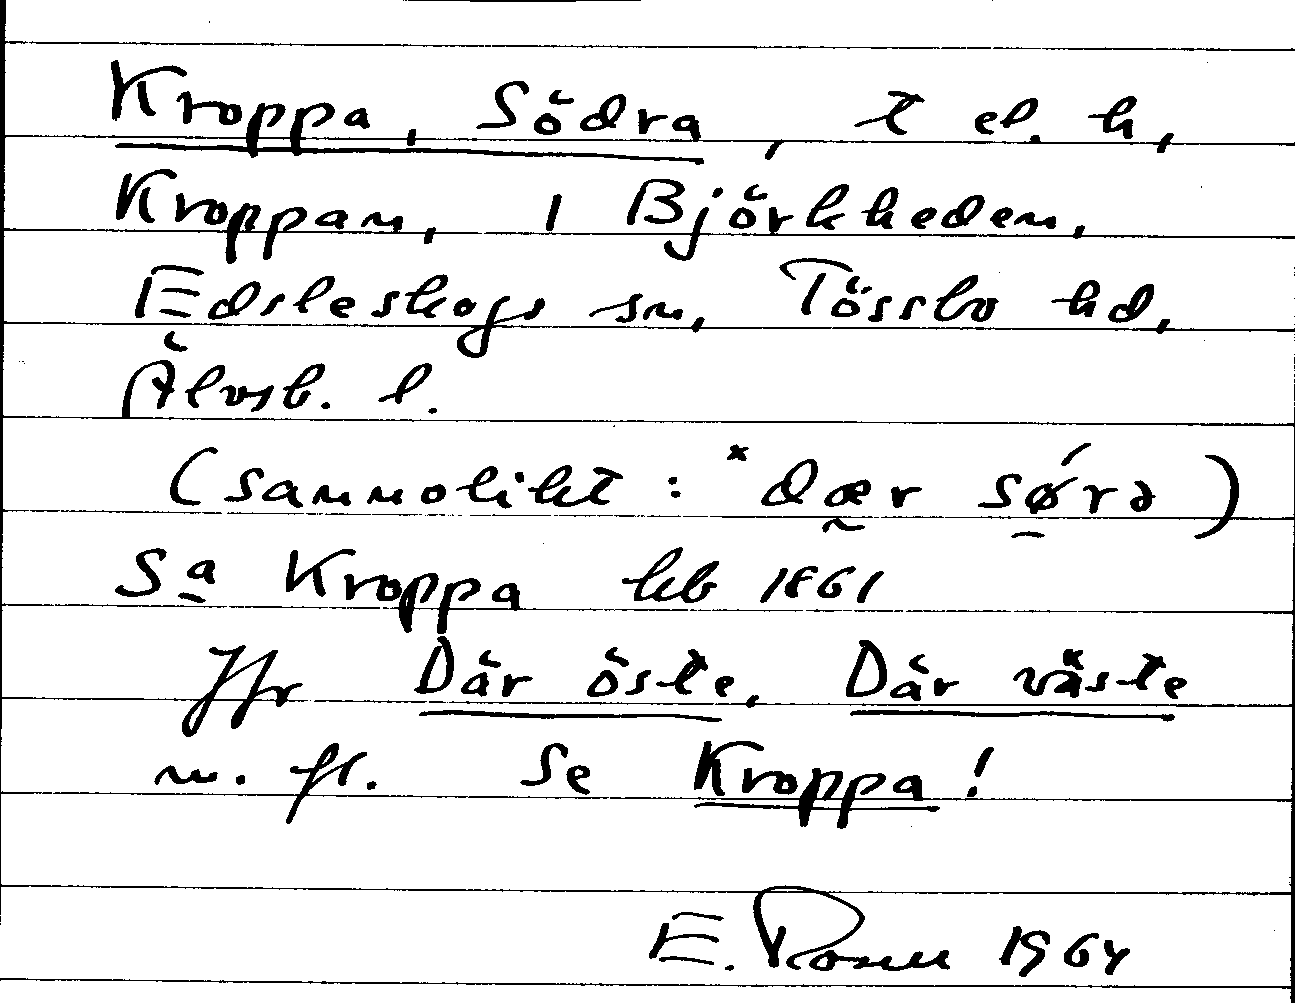 Kroppa, Södra, t el. h,
Kroppan, 1 Björkheden,
Edsleskogs sn, Tössbo hd,
Älvsb. l.
(sannolikt: *dær sǿrə)
Sa Kroppa hfb 1861
Jfr Där öste, Där väste
m. fl. Se Kroppa!
E. Rosell 1964